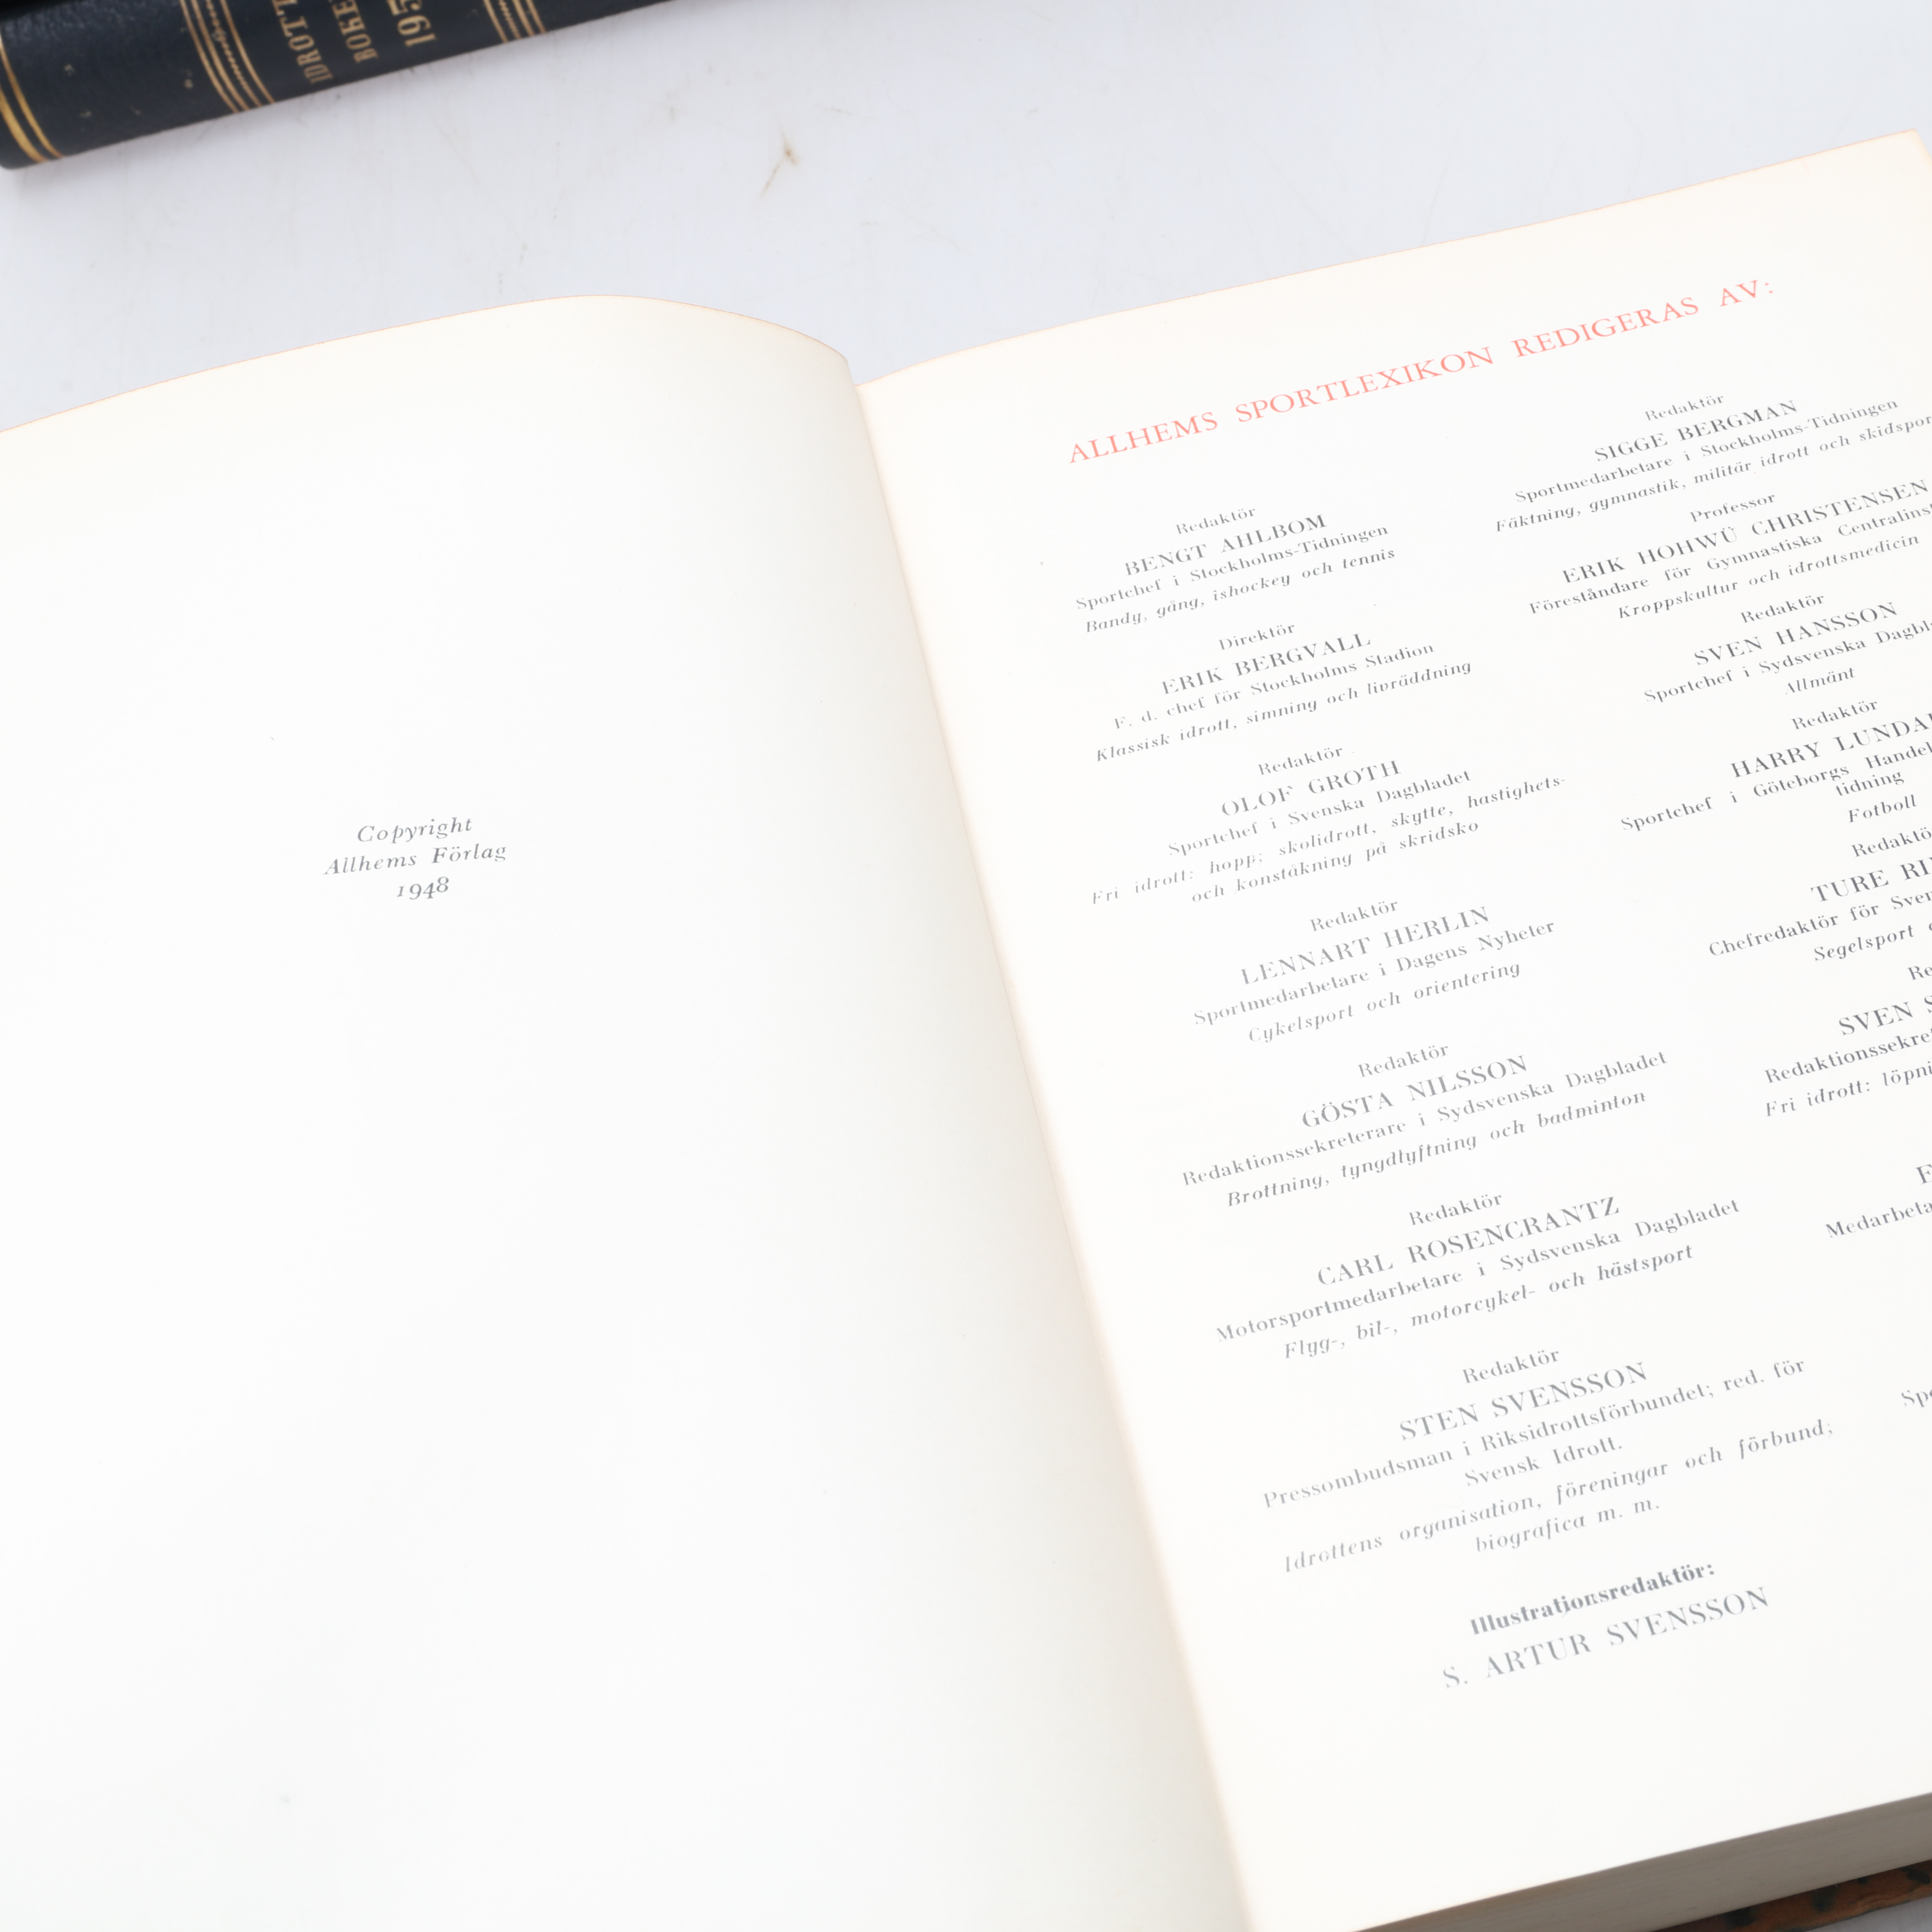 IDROTT
BOKE
195
Copyright
Allhems Förlag
1948
ALLHEMS SPORTLEXIKON REDIGERAS AV:
Redaktör
BENGT AHLBOM
Sportchef i Stockholms-Tidningen
Bandy, gång, ishockey och tennis
Direktör
ERIK BERGVALL
F. d. chef för Stockholms Stadion
Klassisk idrott, simning och livräddning
Redaktör
OLOF GROTH
Sportchef i Svenska Dagbladet
Fri idrott: hopp; skolidrott, skytte, hastighets-
och konståkning på skridsko
Redaktör
LENNART HERLIN
Sportmedarbetare i Dagens Nyheter
Cykelsport och orientering
Redaktör
GÖSTA NILSSON
Redaktionssekreterare i Sydsvenska Dagbladet
Brottning, tyngdlyftning och badminton
Redaktör
CARL ROSENCRANTZ
Motorsportmedarbetare i Sydsvenska Dagbladet
Flyg-, bil-, motorcykel- och hästsport
Redaktör
STEN SVENSSON
Pressombudsman i Riksidrottsförbundet; red. för
Svensk Idrott.
Idrottens organisation, föreningar och förbund;
biografica m. m.
Illustrationsredaktör:
S. ARTUR SVENSSON
Redaktör
SIGGE BERGMAN
Sportmedarbetare i Stockholms-Tidningen
Fäktning, gymnastik, militär idrott och skidspor
Professor
ERIK HOHWÜ CHRISTENSEN
Föreståndare för Gymnastiska Centralinst
Kroppskultur och idrottsmedicin
Redaktör
SVEN HANSSON
Sportchef i Sydsvenska Dagbla
Allmänt
Redaktör
HARRY LUNDA
Sportchef i Göteborgs Handel
tidning
Fotboll
Redaktö
TURE RI
Chefredaktör för Sven
Segelsport
Re
SVEN S
Redaktionssekre
Fri idrott: löpni
Medarbeta
Spo